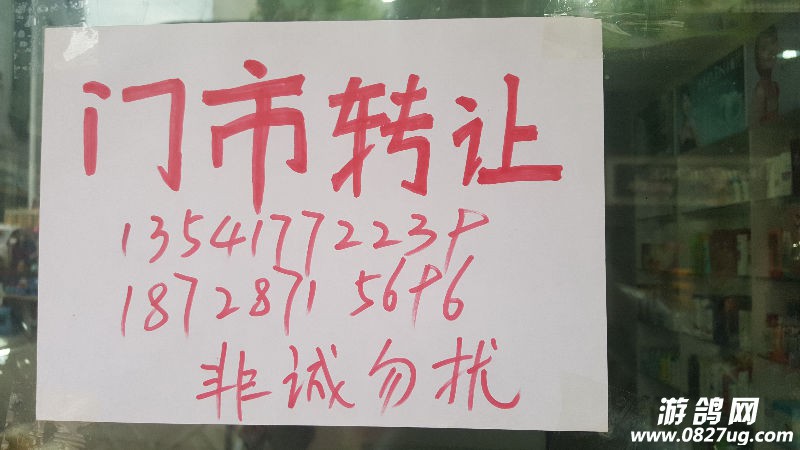 门市转让
13541772239
18728715696
非诚勿扰
游鸽网
www.0827ug.com